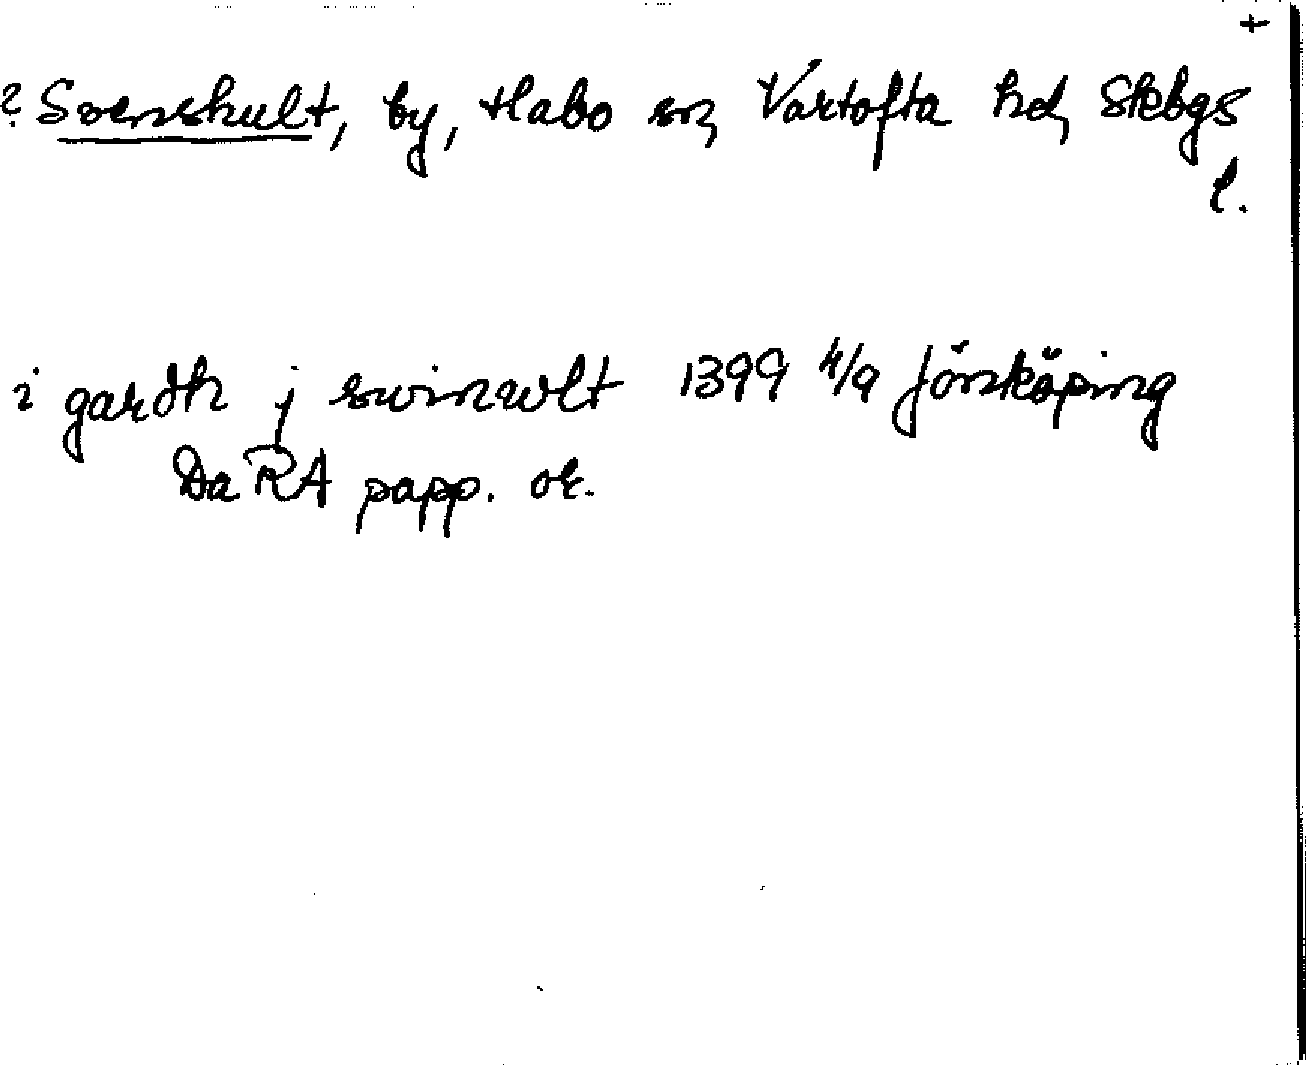 +
? Svenskult, by, Habo sn, Vartofta hd, Skbgs
l.
i gardh j swinwlt 1399 4/9 Jönköping
Da RA papp. or.